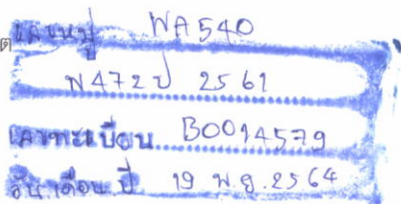 เลขหมู่ WA540
พ472ป 2561
เลขทะเบียน B0014579
วัน เดือน ปี 19 พ.ย. 2564